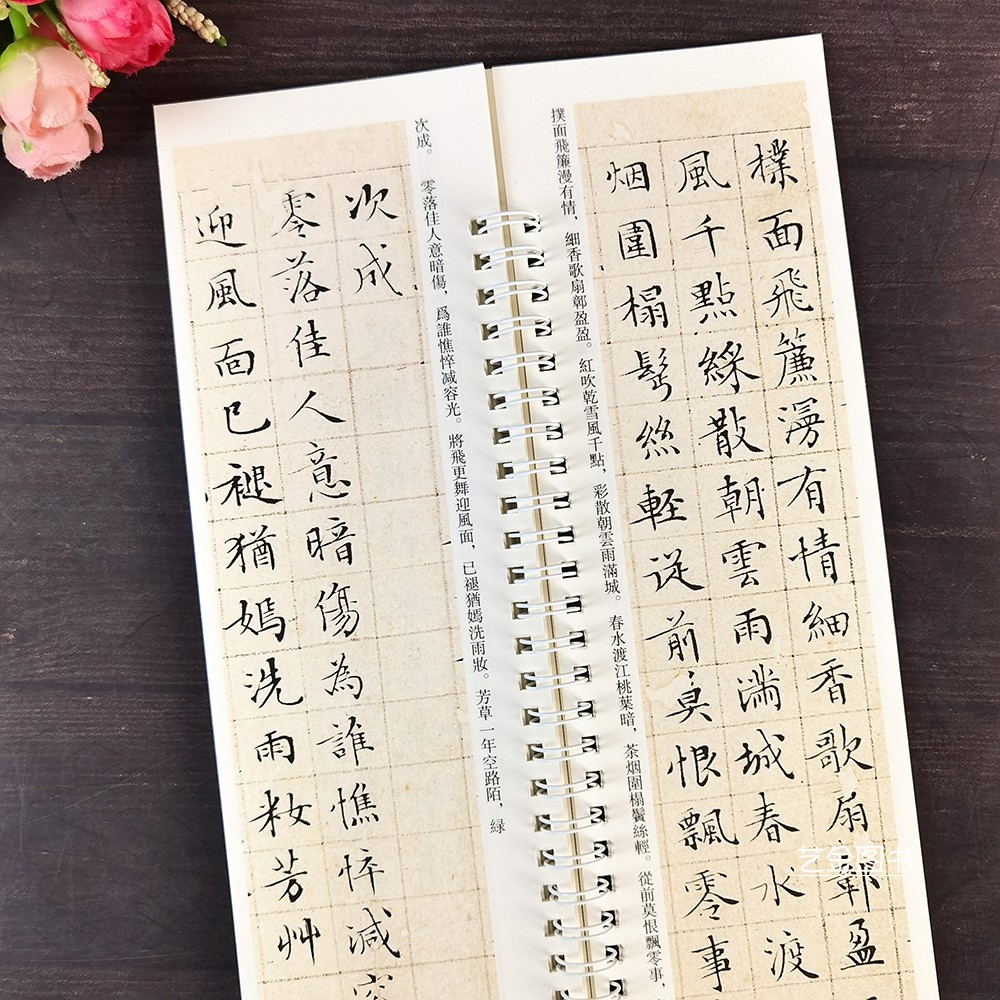 撲面飛簾漫有情細香歌扇鄣盈
風千點綵散朝雲雨滿城春水渡
烟圍榻鬢絲輕從前莫恨飄零事
撲面飛簾漫有情，細香歌扇鄣盈盈。紅吹乾雪風千點，彩散朝雲雨滿城。春水渡江桃葉暗，茶烟圍榻鬢絲輕。從前莫恨飄零事，
次成。 零落佳人意暗傷，爲誰憔悴減容光。將飛更舞迎風面，已褪猶嫣洗雨妝。芳草一年空路陌，緑
次成
零落佳人意暗傷為誰憔悴減容
迎風面已褪猶嫣洗雨妝芳艸
艺金图书